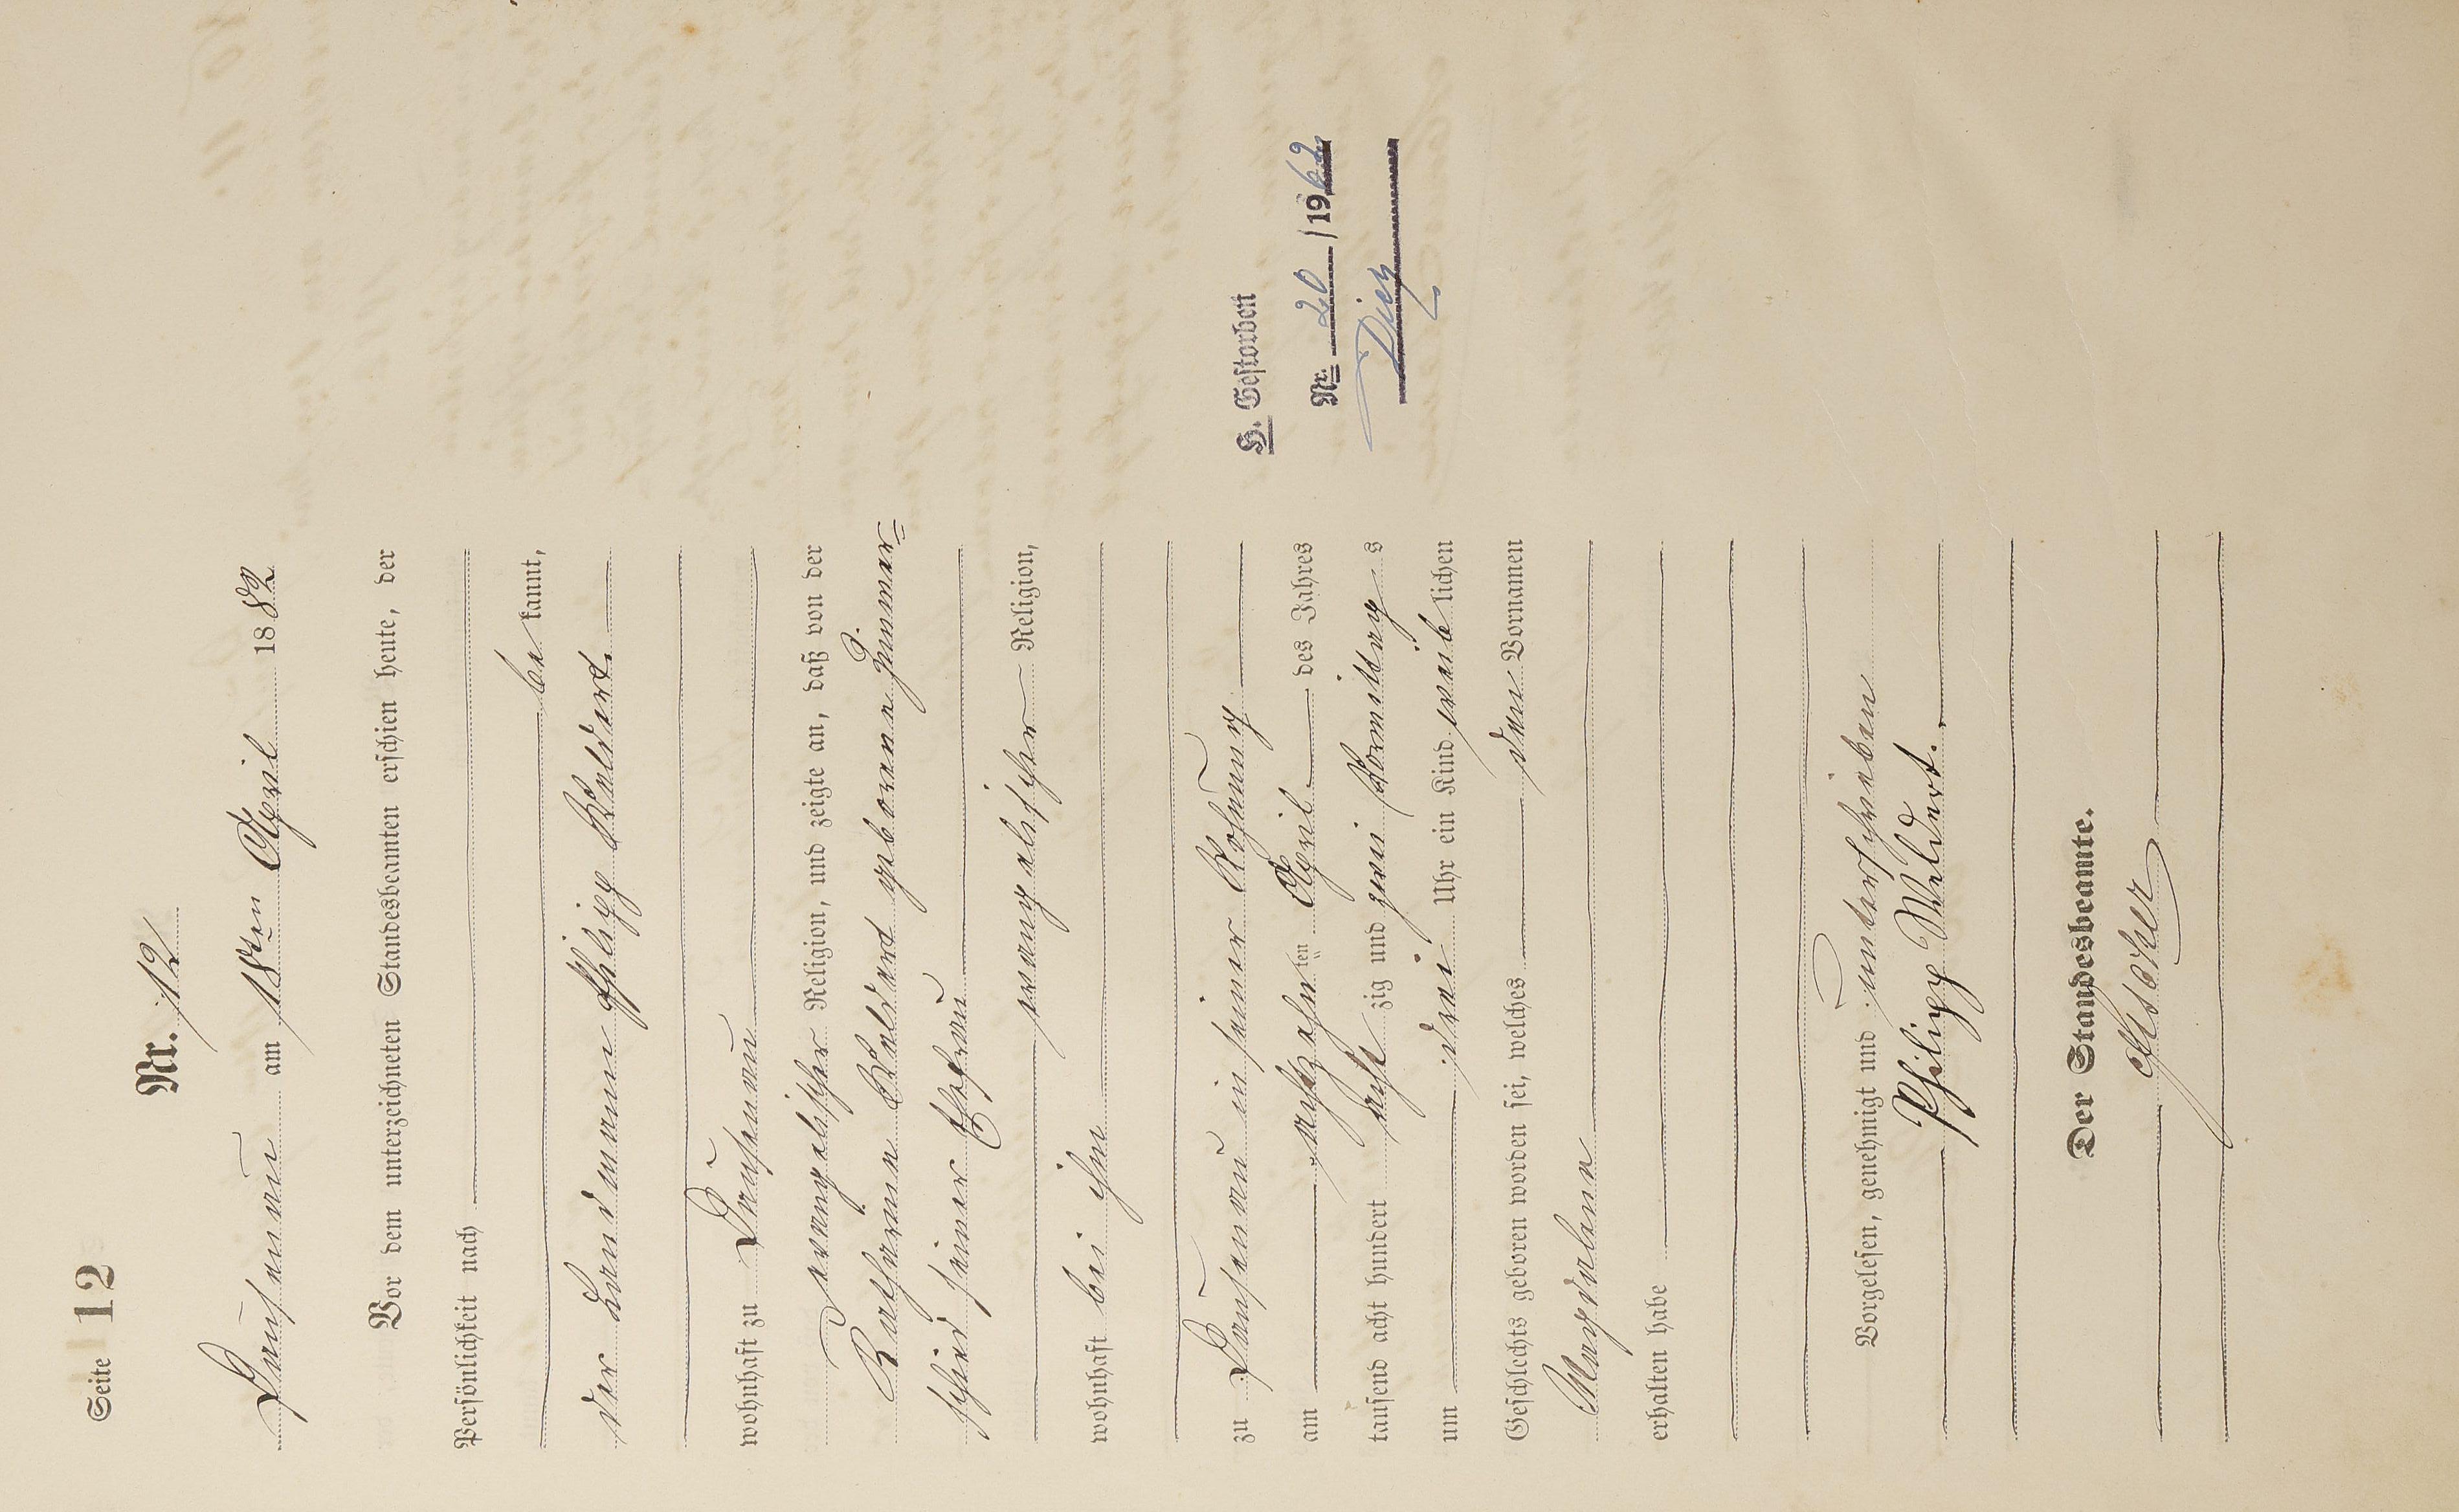 Seite 12
Nr. 12
Dausenau am 18ten April 1882
Vor dem unterzeichneten Standesbeamten erschien heute, der
Persönlichkeit nach
bekannt,
der Landmann Philipp Weldert
wohnhaft zu Dausenau
evangelischer Religion, und zeigte an, daß von der
Katharine Weldert geborene Zimmer=
schied seiner Ehefrau
evangelischer Religion,
wohnhaft bei ihm
zu Dausenau in seiner Wohnung
am achtzehnten April des Jahres
tausend acht hundert achtzig und zwei Vormittags
um drei Uhr ein Kind weiblichen
Geschlechts geboren worden sei, welches den Vornamen
Magdalena
erhalten habe
Vorgelesen, genehmigt und unterschrieben
Philipp Weldert.
Der Standesbeamte.
H. Gestorben
Nr. 20 /1962
Diez